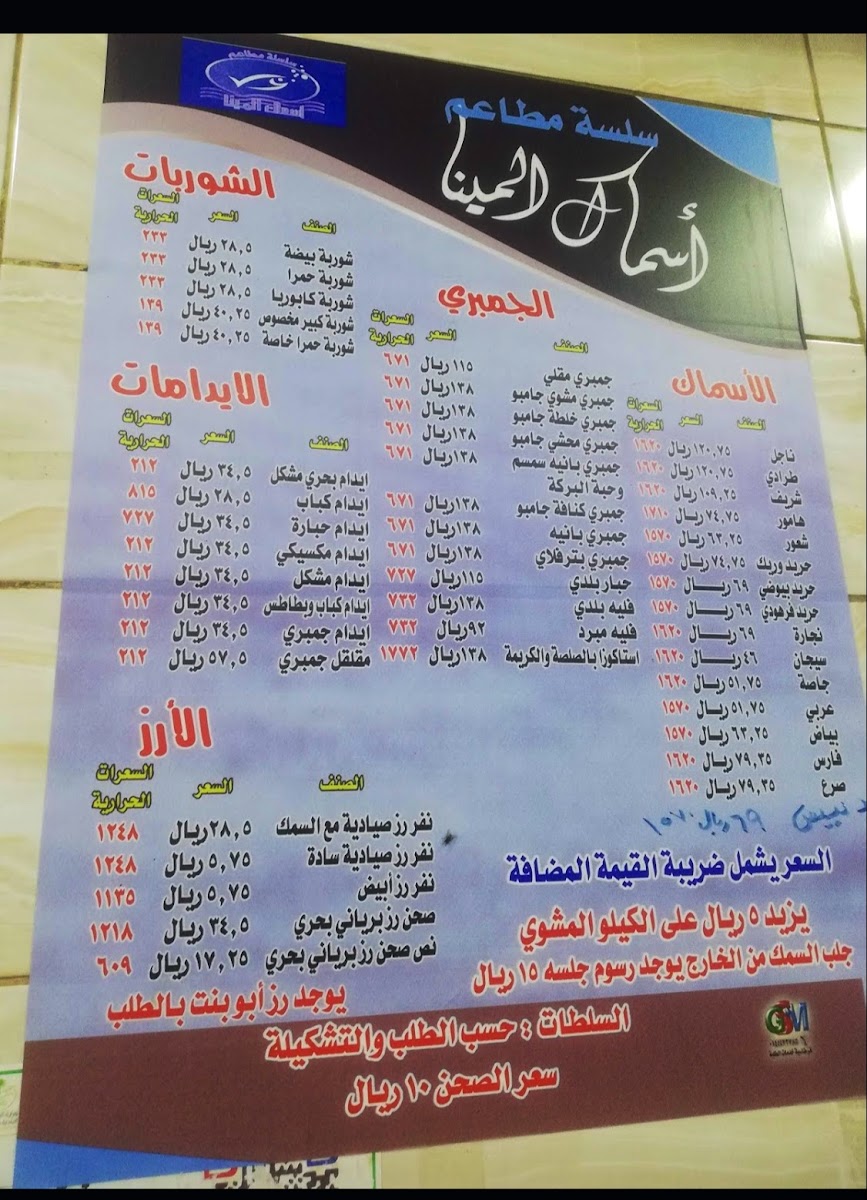 سلسلة مطاعم
أسماك المينا
سلسة مطاعم
أسماك المينا
الشوربات
الصنف السعر السعرات الحرارية
شوربة بيضة ٢٨,٥ ريال ٢٣٣
شوربة حمرا ٢٨,٥ ريال ٢٣٣
شوربة كابوريا ٢٨,٥ ريال ٢٣٣
شوربة كبير مخصوص ٤٠,٢٥ ريال ١٣٩
شوربة حمرا خاصة ٤٠,٢٥ ريال ١٣٩
الجمبري
الصنف السعر السعرات الحرارية
جمبري مقلي ١١٥ ريال ٦٧١
جمبري مشوي جامبو ١٣٨ ريال ٦٧١
جمبري خلطة جامبو ١٣٨ ريال ٦٧١
جمبري محشي جامبو ١٣٨ ريال ٦٧١
جمبري بانيه سمسم ١٣٨ ريال ٦٧١
وحبة البركة
جمبري كنافة جامبو ١٣٨ ريال ٦٧١
جمبري بانيه ١٣٨ ريال ٦٧١
جمبري بترفلاي ١٣٨ ريال ٦٧١
حبار بلدي ١١٥ ريال ٧٢٧
فليه بلدي ١٣٨ ريال ٧٣٢
فليه مبرد ٩٢ ريال ٧٣٢
استاكوزا بالصلصة والكريمة ١٣٨ ريال ١٧٧٢
الأسماك
الصنف السعر السعرات الحرارية
ناجل ١٢٠,٧٥ ريال ١٦٢٠
طرادي ١٢٠,٧٥ ريال ١٦٢٠
شريف ١٠٩,٢٥ ريال ١٦٢٠
هامور ٧٤,٧٥ ريال ١٧١٠
شعور ٦٣,٢٥ ريال ١٥٧٠
حريد وريك ٧٤,٧٥ ريال ١٥٧٠
حريد بيوضي ٦٩ ريال ١٥٧٠
حريد فرهودي ٦٩ ريال ١٥٧٠
نجارة ٦٩ ريال ١٦٢٠
سيجان ٤٦ ريال ١٦٢٠
جاصة ٥١,٧٥ ريال ١٦٢٠
عربي ٥١,٧٥ ريال ١٥٧٠
بياض ٦٣,٢٥ ريال ١٥٧٠
فارس ٧٩,٣٥ ريال ١٦٢٠
صرع ٧٩,٣٥ ريال ١٦٢٠
٦٩ ريال ١٥٧٠
الايدامات
الصنف السعر السعرات الحرارية
إيدام بحري مشكل ٣٤,٥ ريال ٢١٢
إيدام كباب ٢٨,٥ ريال ٨١٥
إيدام حبارة ٣٤,٥ ريال ٧٢٧
إيدام مكسيكي ٣٤,٥ ريال ٢١٢
إيدام مشكل ٣٤,٥ ريال ٢١٢
إيدام كباب وبطاطس ٣٤,٥ ريال ٢١٢
إيدام جمبري ٣٤,٥ ريال ٢١٢
مقلقل جمبري ٥٧,٥ ريال ٢١٢
الأرز
الصنف السعر السعرات الحرارية
نفر رز صيادية مع السمك ٢٨,٥ ريال ١٢٤٨
نفر رز صيادية سادة ٥,٧٥ ريال ١٢٤٨
نفر رز أبيض ٥,٧٥ ريال ١١٣٥
صحن رز برياني بحري ٣٤,٥ ريال ١٢١٨
نص صحن رز برياني بحري ١٧,٢٥ ريال ٦٠٩
يوجد رز أبو بنت بالطلب
السعر يشمل ضريبة القيمة المضافة
يزيد ٥ ريال على الكيلو المشوي
جلب السمك من الخارج يوجد رسوم جلسه ١٥ ريال
السلطات : حسب الطلب والتشكيلة
سعر الصحن ١٠ ريال
GSM